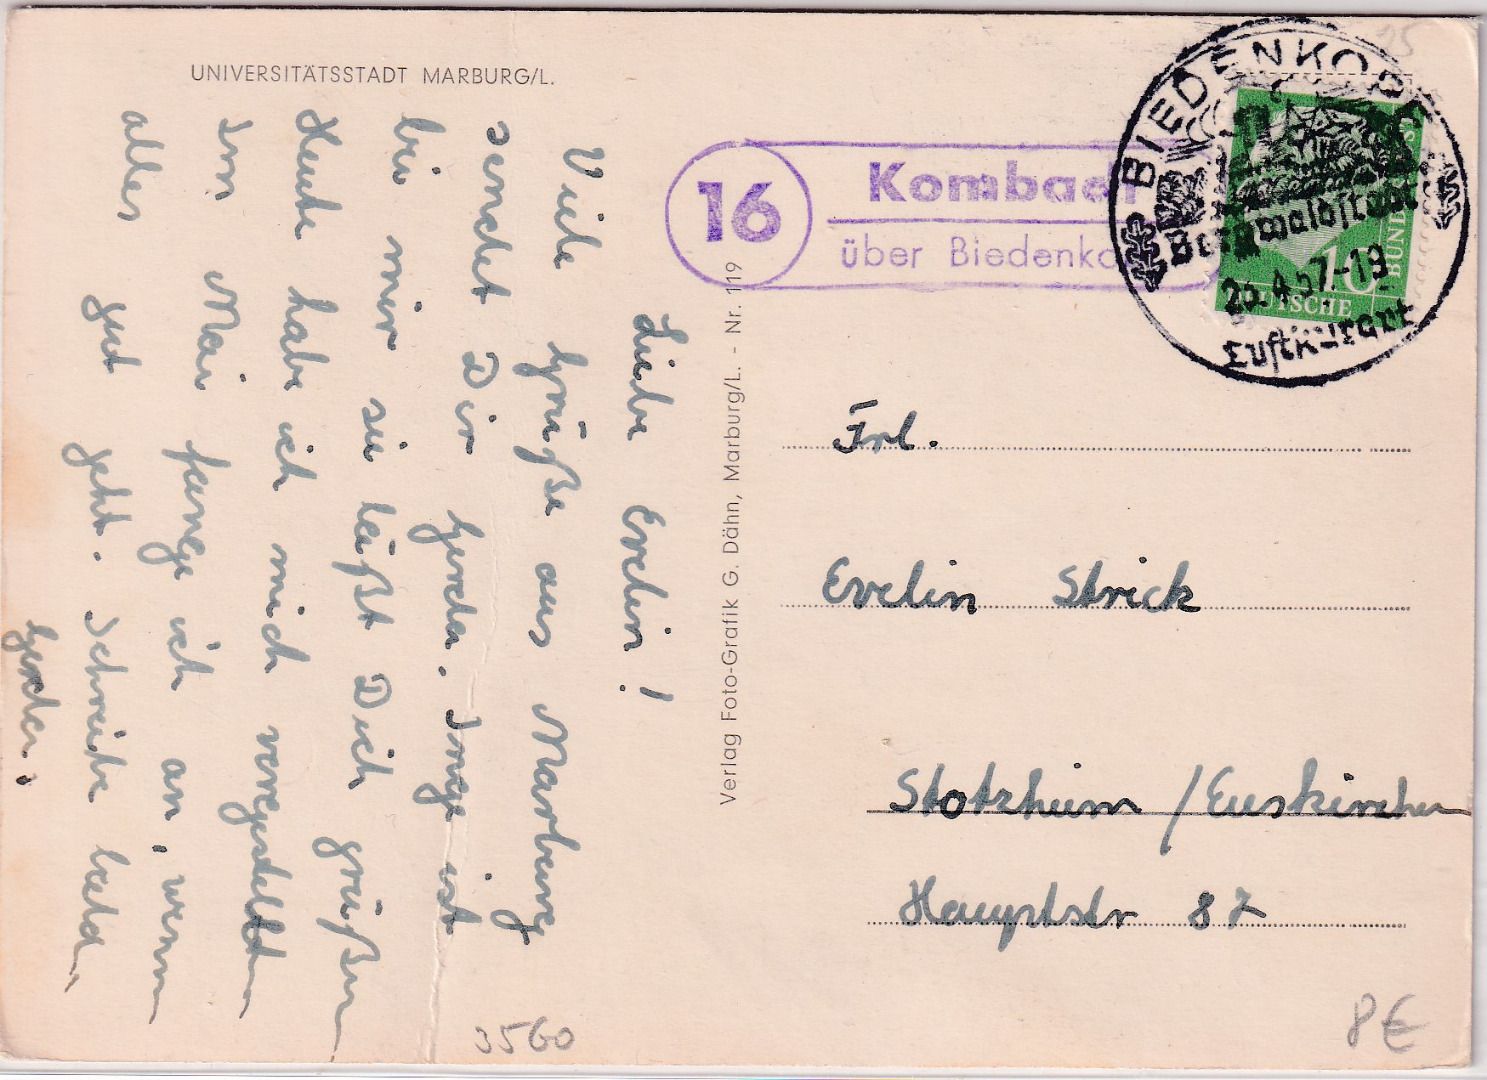 UNIVERSITÄTSSTADT MARBURG/L.
Liebe Evelin!
Viele Grüße aus Marburg
sendet Dir Gerda. Inge ist
bei mir sie läßt Dich grüßen
Heute habe ich mich vorgestellt
Im Mai fange ich an, wenn
alles gut geht. Schreibe bald
Gerda.
Verlag Foto-Grafik G. Dähn, Marburg/L. - Nr. 119
16
Kombach
über Biedenko
BIEDENKOPF
Bergwaldstadt
25.4.57.-19
Luftkurort
10
DEUTSCHE
BUNDESPOST
Frl.
Evelin Strick
Stotzheim / Euskirchen
Hauptstr 87
3560
8€
25